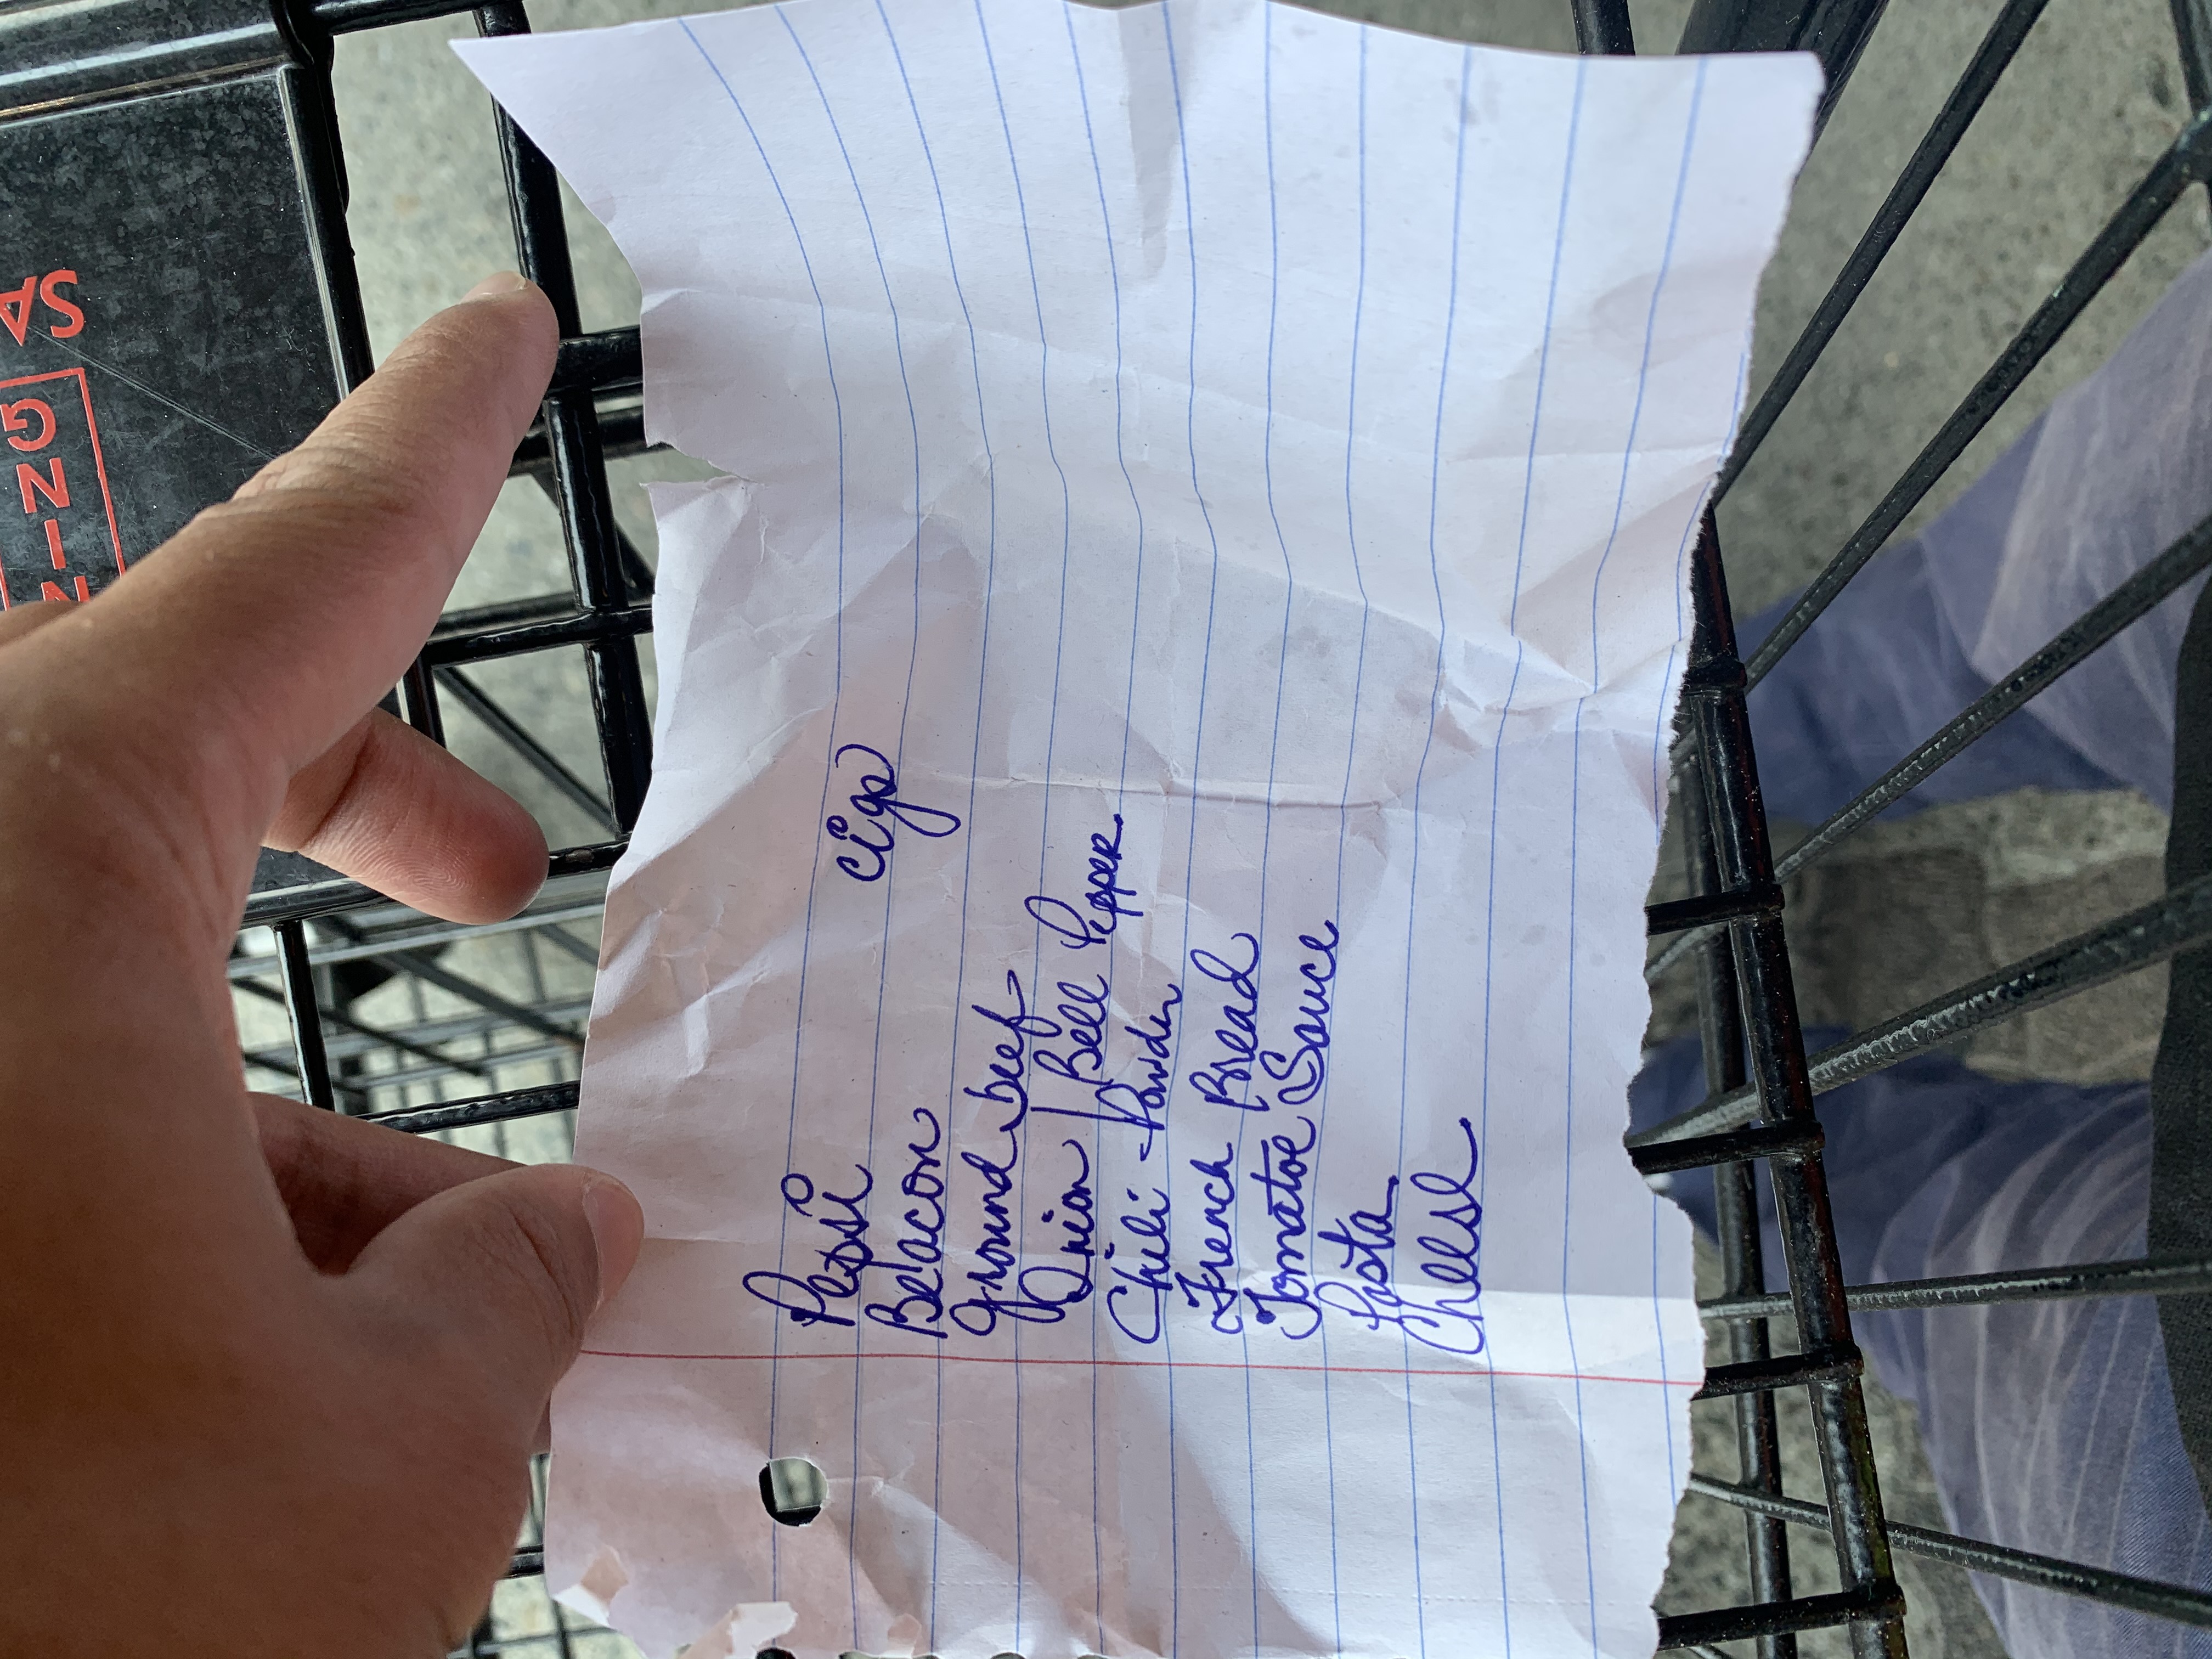 NING
SA
Pepsi cigs
Beacon
Ground beef
Onion / Bell Pepper
Chili Powder
French Bread
Tomatoe Sauce
Pasta
Cheese